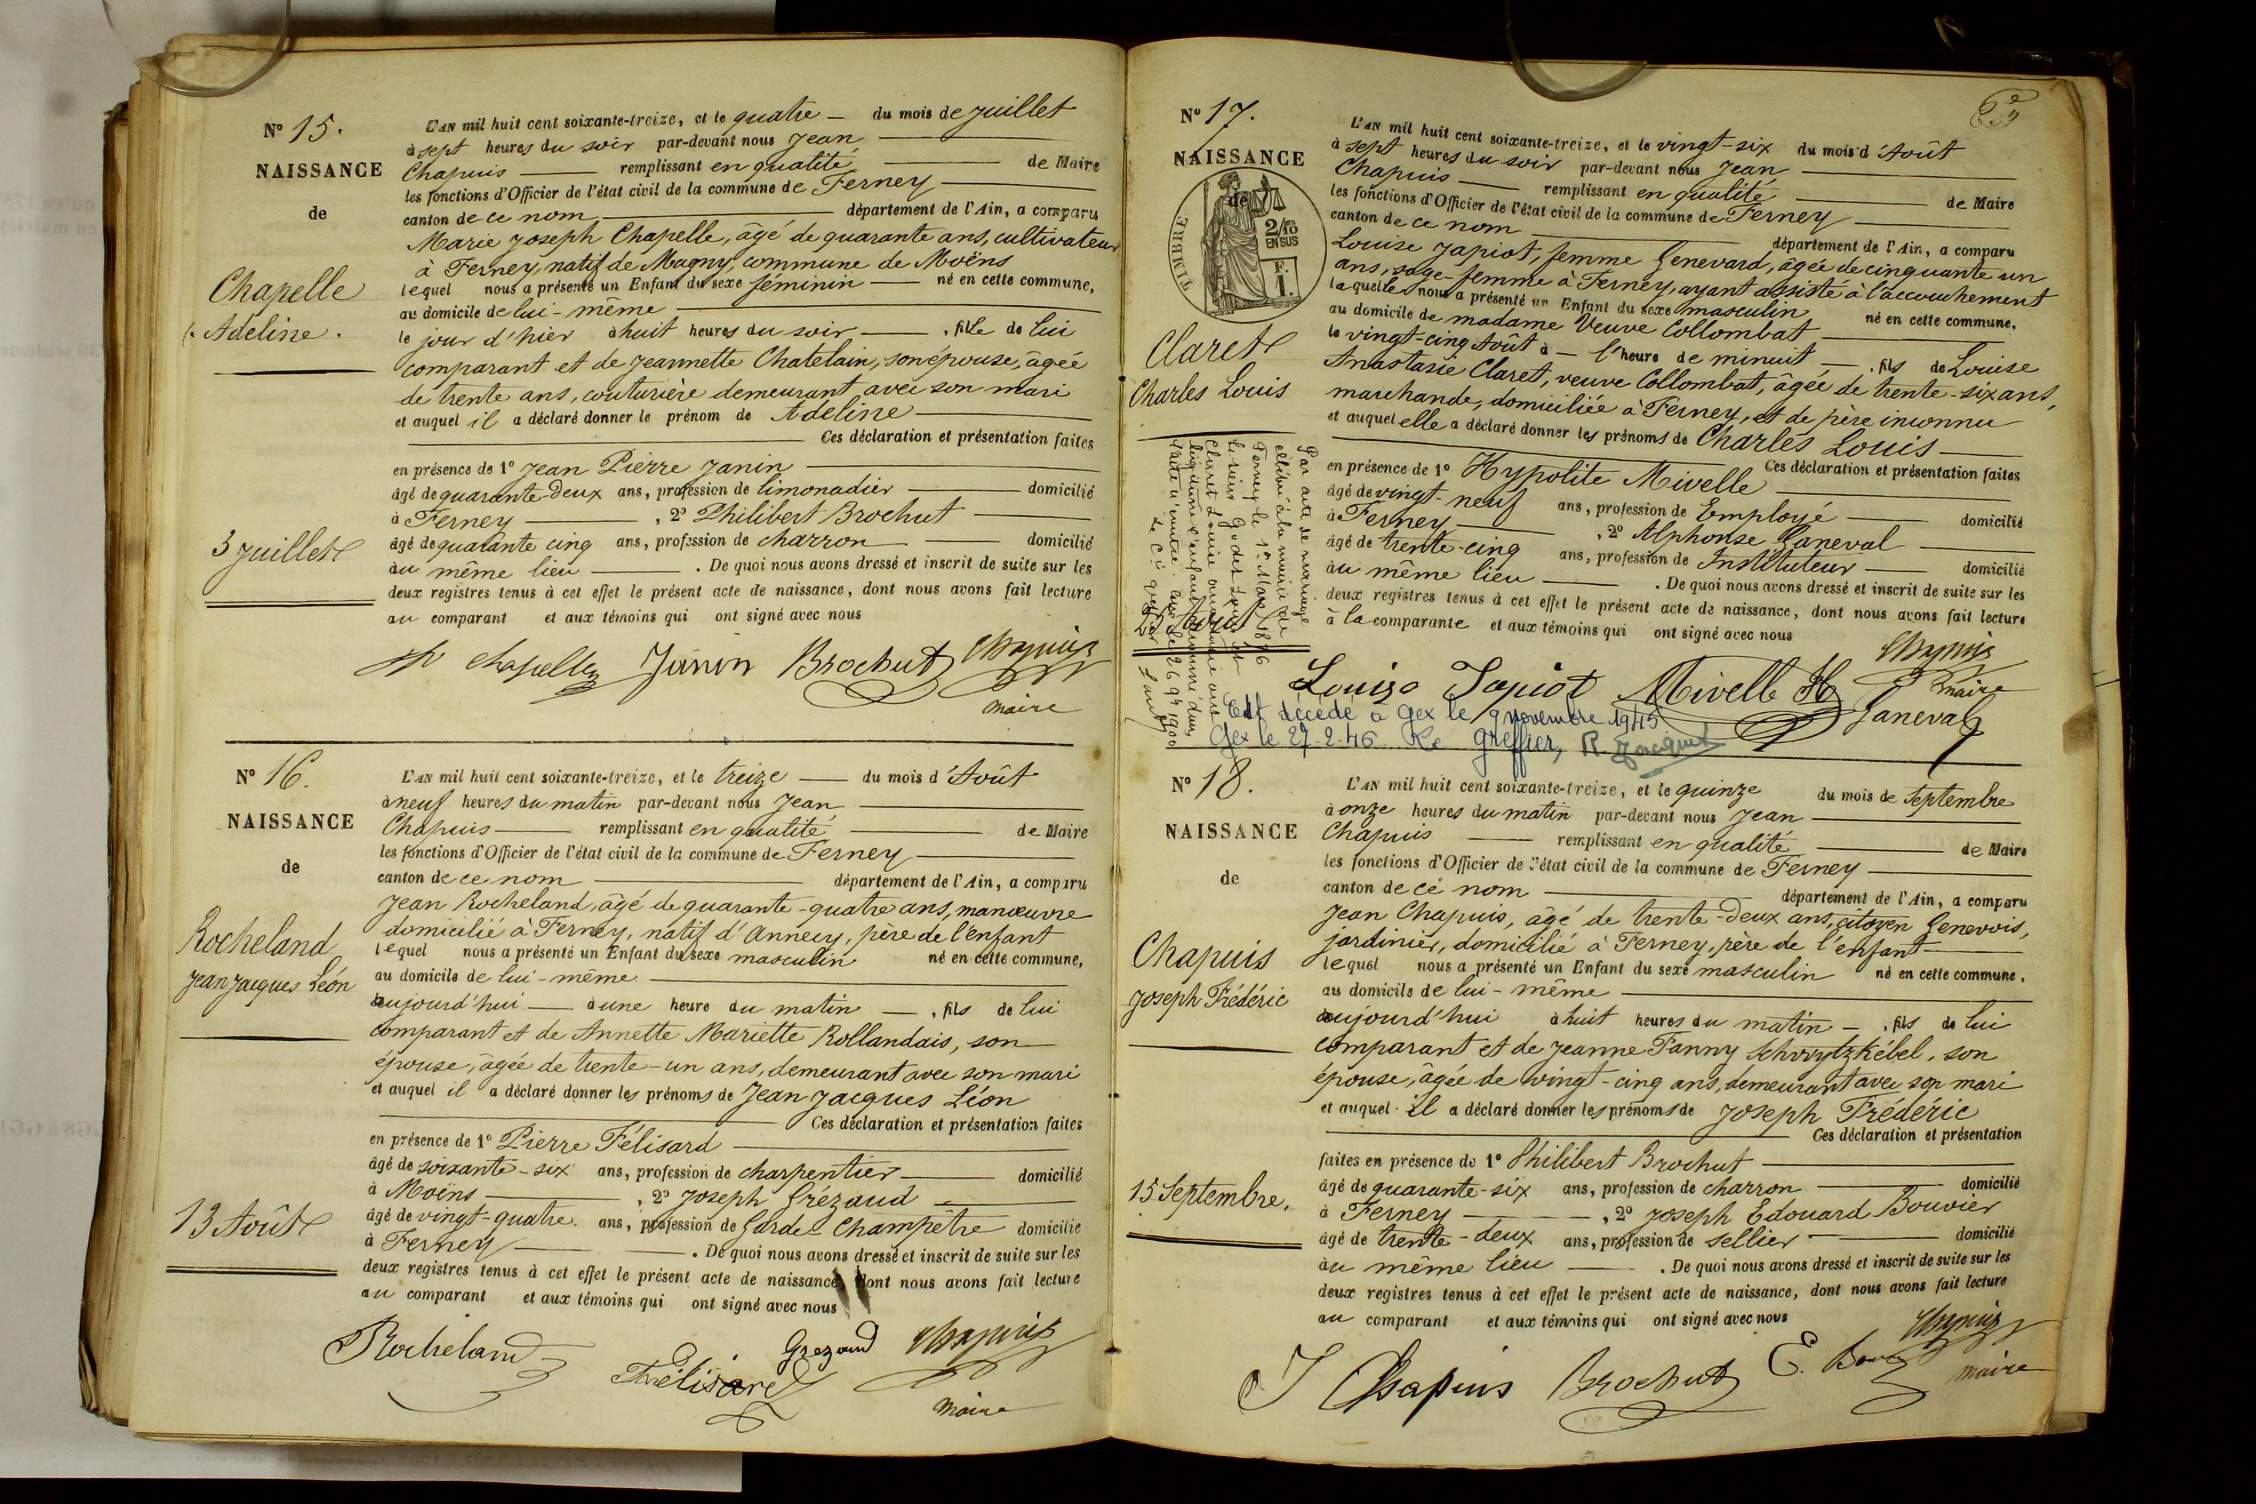 N° 15.
NAISSANCE
de
Chapelle
Adeline.
3 Juillet
L'AN mil huit cent soixante-treize, et le quatre — du mois de Juillet
à sept heures du soir par-devant nous Jean
Chapuis — remplissant en qualité — de Maire
les fonctions d'Officier de l'état civil de la commune de Ferney
canton de ce nom — département de l'Ain, a comparu
Marie Joseph Chapelle, âgé de quarante ans, cultivateur
à Ferney, natif de Magny, commune de Moëns
lequel nous a présenté un Enfant du sexe féminin — né en cette commune,
au domicile de lui-même
le jour d'hier à huit heures du soir — , fille de lui
comparant et de Jeannette Chatelain, son épouse, âgée
de trente ans, couturière demeurant avec son mari
et auquel il a déclaré donner le prénom de Adeline
Ces déclaration et présentation faites
en présence de 1° Jean Pierre Janin
âgé de quarante-deux ans, profession de limonadier — domicilié
à Ferney — , 2° Philibert Brochut
âgé de quarante cinq ans, profession de charron — domicilié
au même lieu — . De quoi nous avons dressé et inscrit de suite sur les
deux registres tenus à cet effet le présent acte de naissance, dont nous avons fait lecture
au comparant et aux témoins qui ont signé avec nous
Chapelle Janin Brochut Chapuis
maire
N° 16.
NAISSANCE
de
Rocheland
Jean Jacques Léon
13 Août
L'AN mil huit cent soixante-treize, et le treize — du mois d'Août
à neuf heures du matin par-devant nous Jean
Chapuis — remplissant en qualité — de Maire
les fonctions d'Officier de l'état civil de la commune de Ferney
canton de ce nom — département de l'Ain, a comparu
Jean Rocheland, âgé de quarante-quatre ans, manœuvre
domicilié à Ferney, natif d'Annecy, père de l'enfant
lequel nous a présenté un Enfant du sexe masculin né en cette commune,
au domicile de lui-même
aujourd'hui — à une heure du matin — , fils de lui
comparant et de Annette Mariette Rollandais, son
épouse, âgée de trente-un ans, demeurant avec son mari
et auquel il a déclaré donner les prénoms de Jean Jacques Léon
Ces déclaration et présentation faites
en présence de 1° Pierre Félisard
âgé de soixante-six ans, profession de charpentier — domicilié
à Moëns — , 2° Joseph Grézaud
âgé de vingt-quatre ans, profession de Garde-Champêtre domicilié
à Ferney — . De quoi nous avons dressé et inscrit de suite sur les
deux registres tenus à cet effet le présent acte de naissance, dont nous avons fait lecture
au comparant et aux témoins qui ont signé avec nous
Rocheland Félisard Grezaud Chapuis
maire
N° 17.
NAISSANCE
de
TIMBRE
2/10
EN SUS
F.
1.
Claret
Charles Louis
Par acte de mariage
célébré à la mairie de
Ferney le 1er Mai 1876
le sieur Godet Louis et
Claret Louise
légitimé l'enfant dénommé dans
l'acte ci-contre.
25 Août
L'AN mil huit cent soixante-treize, et le vingt-six du mois d'Août
à sept heures du soir par-devant nous Jean
Chapuis — remplissant en qualité — de Maire
les fonctions d'Officier de l'état civil de la commune de Ferney
canton de ce nom — département de l'Ain, a comparu
Louise Japiot, femme Genevard, âgée de cinquante un
ans, sage-femme à Ferney, ayant assisté à l'accouchement
laquelle nous a présenté un Enfant du sexe masculin né en cette commune,
au domicile de madame Veuve Collombat
le vingt-cinq Août à — l'heure de minuit — , fils de Louise
Anastasie Claret, veuve Collombat, âgée de trente-six ans,
marchande, domiciliée à Ferney, et de père inconnu
et auquel elle a déclaré donner les prénoms de Charles Louis
Ces déclaration et présentation faites
en présence de 1° Hypolite Mivelle
âgé de vingt-neuf ans, profession de Employé — domicilié
à Ferney — , 2° Alphonse Ganeval
âgé de trente-cinq ans, profession de Instituteur — domicilié
au même lieu — . De quoi nous avons dressé et inscrit de suite sur les
deux registres tenus à cet effet le présent acte de naissance, dont nous avons fait lecture
à la comparante et aux témoins qui ont signé avec nous
Louise Japiot Mivelle H Ganeval Chapuis
maire
Est décédé à Gex le 9 novembre 1945
Gex le 27-2-46 Le greffier, R. Jacquet
N° 18.
NAISSANCE
de
Chapuis
Joseph Frédéric
15 Septembre.
L'AN mil huit cent soixante-treize, et le quinze du mois de Septembre
à onze heures du matin par-devant nous Jean
Chapuis — remplissant en qualité — de Maire
les fonctions d'Officier de l'état civil de la commune de Ferney
canton de ce nom — département de l'Ain, a comparu
Jean Chapuis, âgé de trente-deux ans, citoyen Genevois,
jardinier, domicilié à Ferney, père de l'enfant
lequel nous a présenté un Enfant du sexe masculin né en cette commune,
au domicile de lui-même
aujourd'hui à huit heures du matin — , fils de lui
comparant et de Jeanne Fanny Schwytzkébel, son
épouse, âgée de vingt-cinq ans, demeurant avec son mari
et auquel il a déclaré donner les prénoms de Joseph Frédéric
Ces déclaration et présentation
faites en présence de 1° Philibert Brochut
âgé de quarante-six ans, profession de charron — domicilié
à Ferney — , 2° Joseph Edouard Bouvier
âgé de trente-deux ans, profession de sellier — domicilié
au même lieu — . De quoi nous avons dressé et inscrit de suite sur les
deux registres tenus à cet effet le présent acte de naissance, dont nous avons fait lecture
au comparant et aux témoins qui ont signé avec nous
J Chapuis Brochut E. Bouvier Chapuis
maire